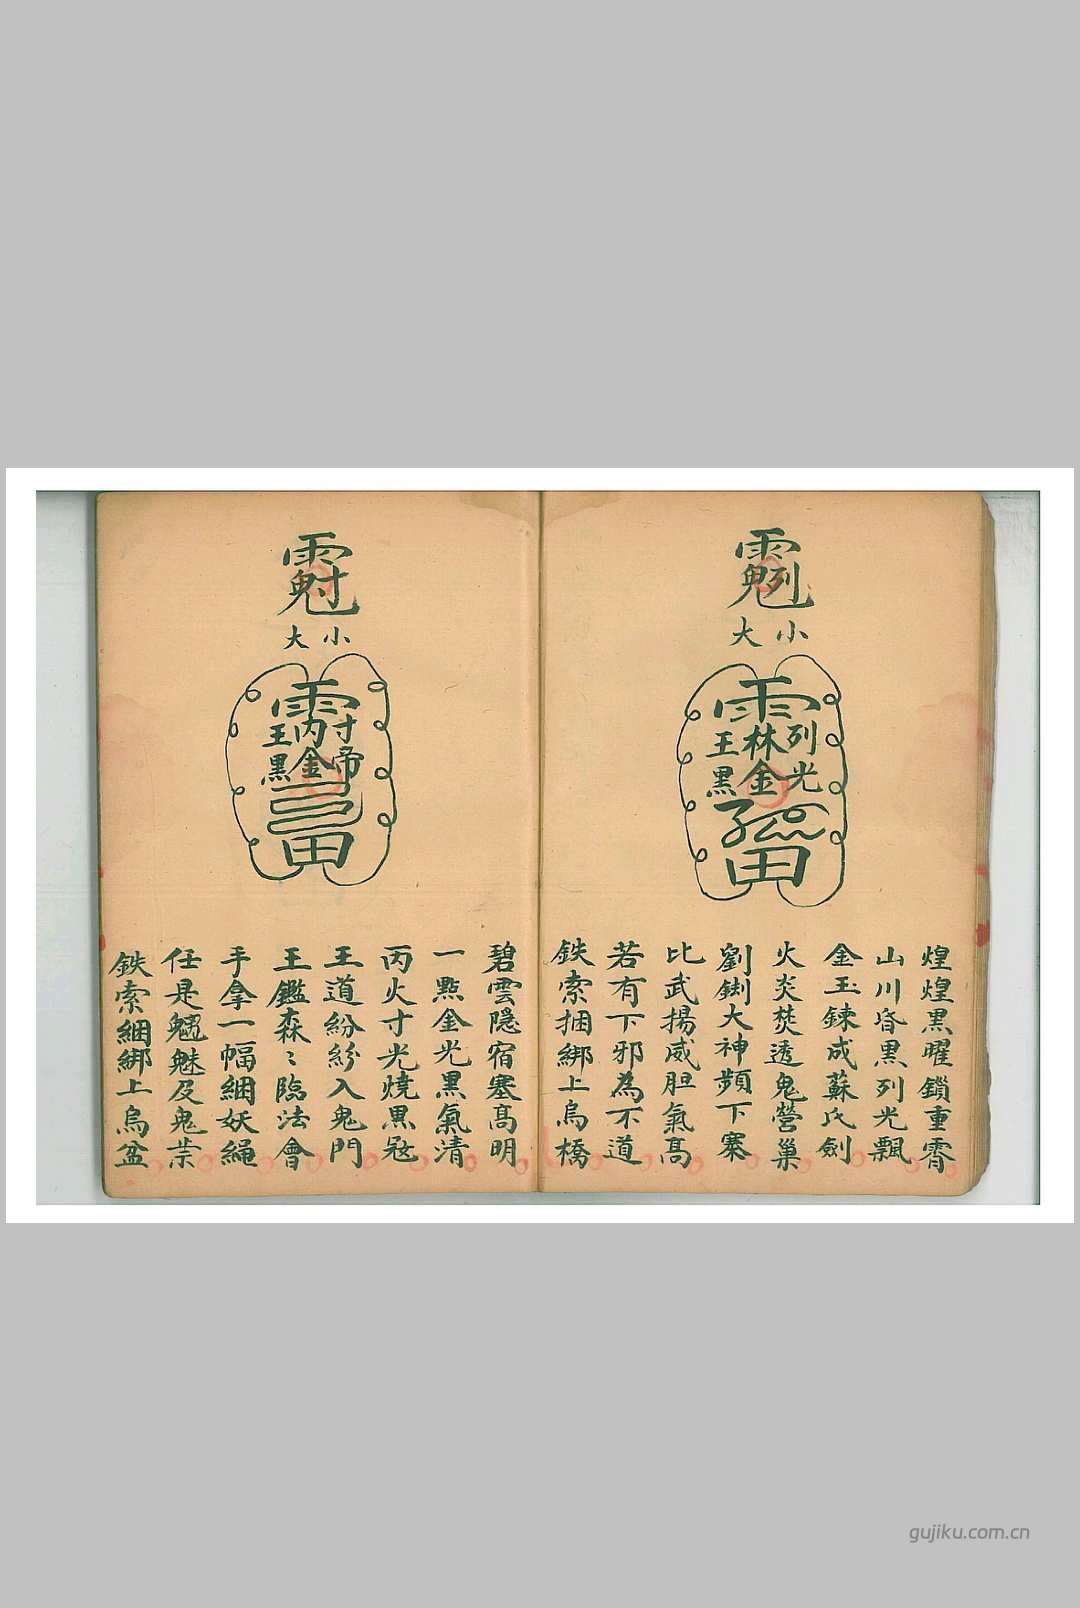 小大
列林王
光金黑
田
煌煌黒曜鎖重霄
山川昏黑列光飄
金玉鍊成蘇氏劍
火炎焚透鬼營巢
劉鍘大神頻下寨
比武揚威胆氣髙
若有下邪為不道
鉄索捆綁上烏橋
小大
寸丙王
帝金黑
田
碧雲隠宿塞髙明
一點金光黑氣清
丙火寸光燒黑
王道紛紛入鬼門
王鑑森〻臨法會
手拿一幅綑妖繩
任是魅及鬼祟
鉄索綑綁上烏盆
gujiku.com.cn